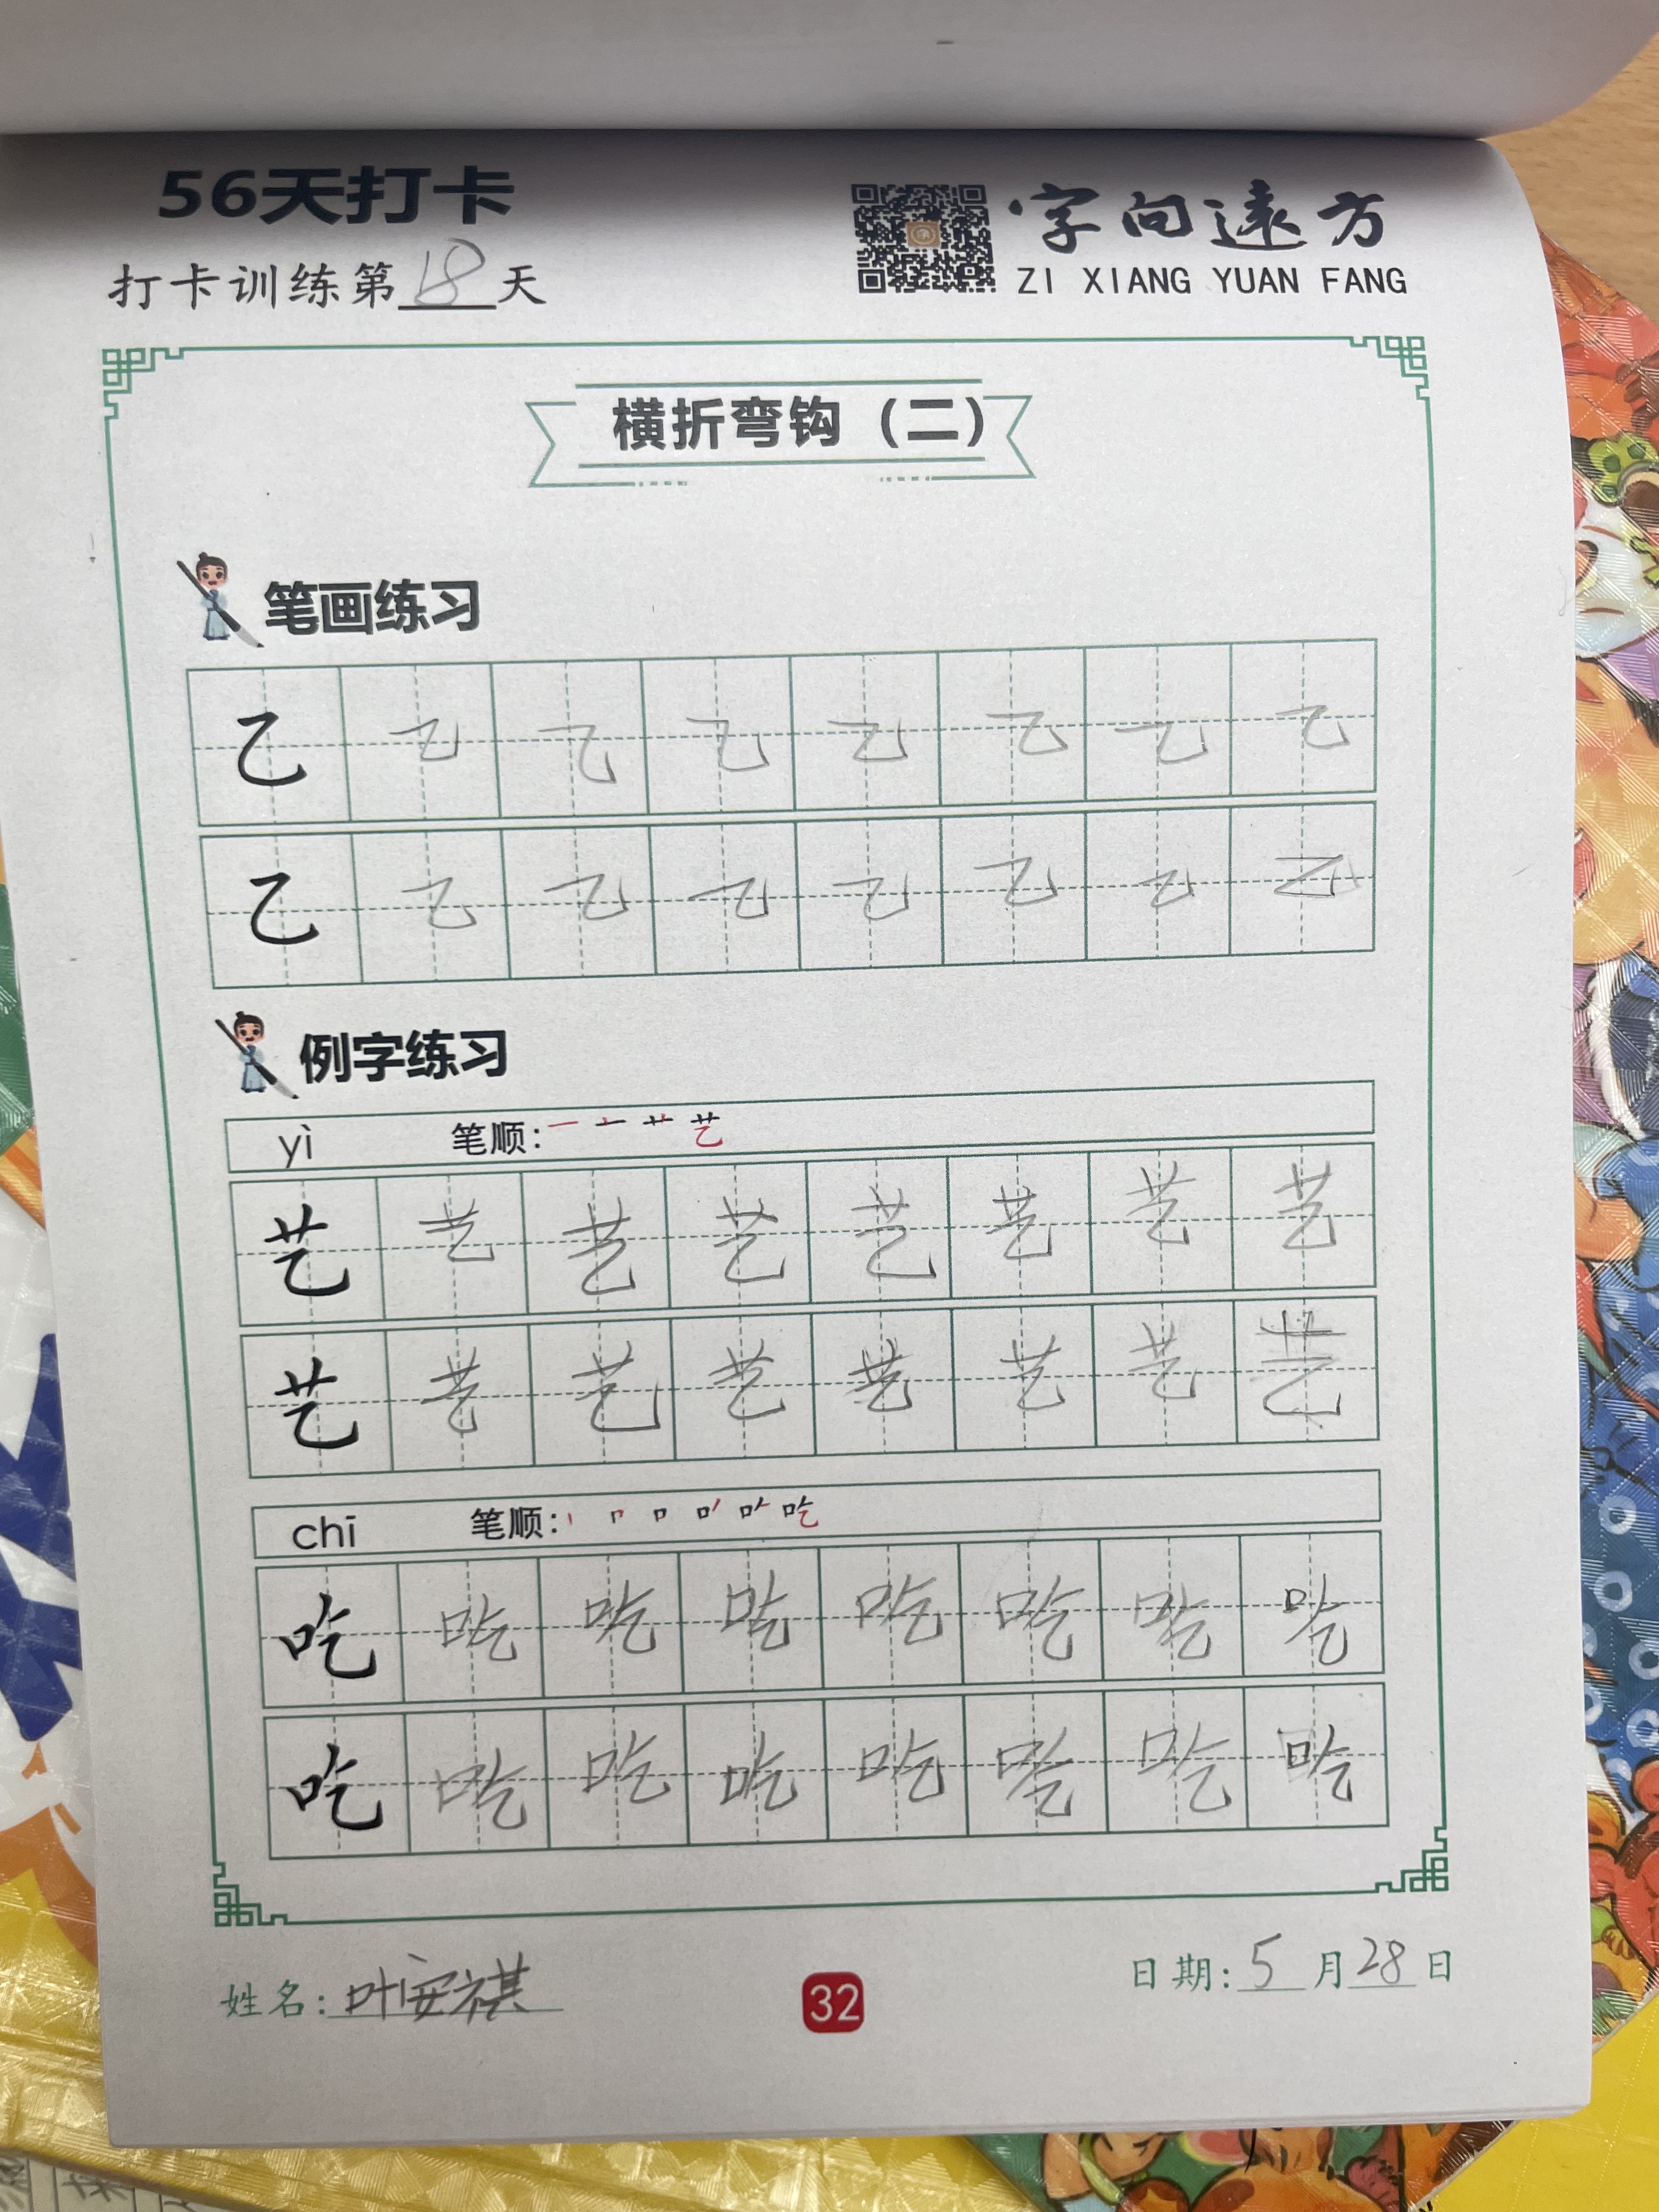 56天打卡
字向遠方
打卡训练第18天
ZI XIANG YUAN FANG
横折弯钩（二）
笔画练习
乙 乙 乙 乙 乙 乙 乙 乙
乙 乙 乙 乙 乙 乙 乙 乙
例字练习
yì 笔顺: 一 艹 艺
艺 艺 艺 艺 艺 艺 艺 艺
艺 艺 艺 艺 艺 艺 艺 艺
chī 笔顺: 丨 口 吃
吃 吃 吃 吃 吃 吃 吃 吃
吃 吃 吃 吃 吃 吃 吃 吃
姓名: 叶安祺
32
日期: 5月28日